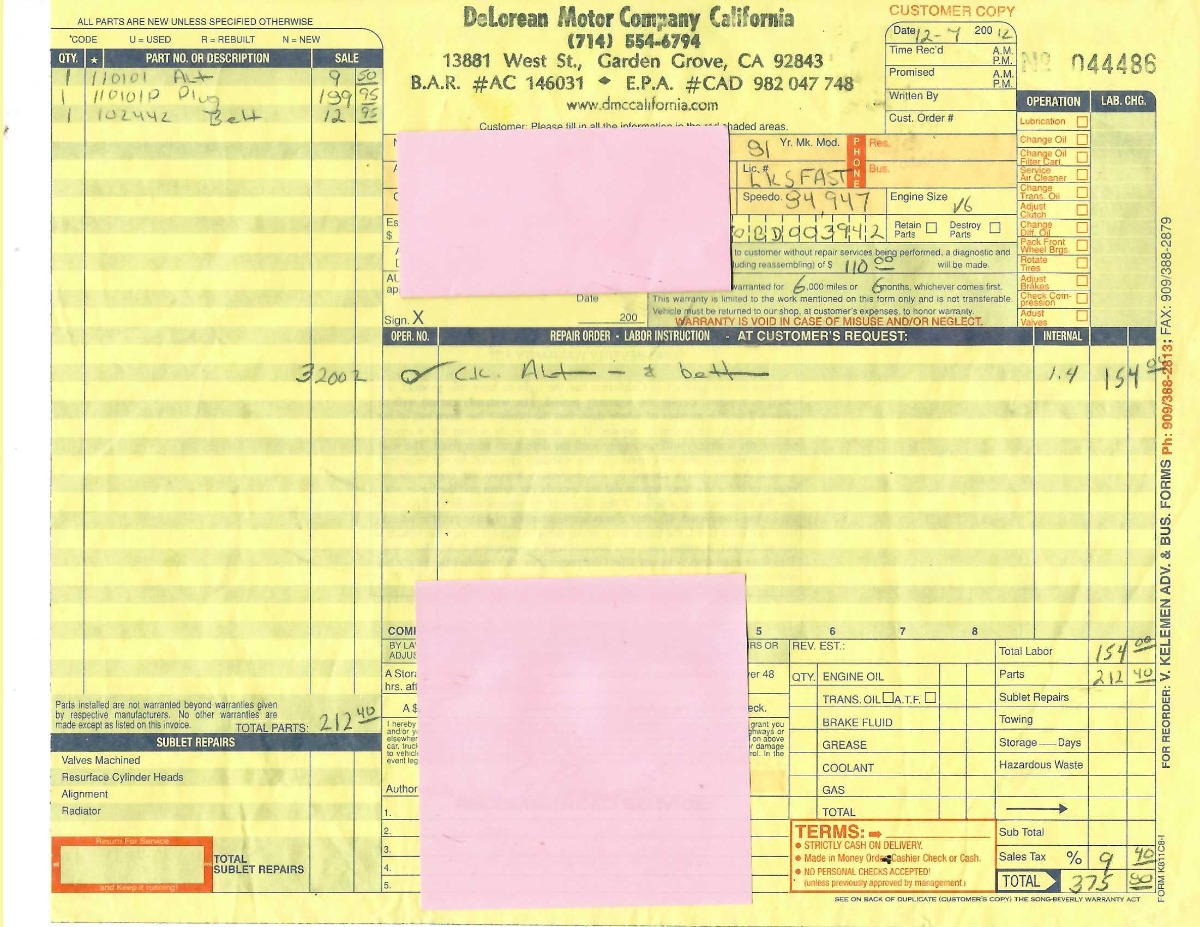 ALL PARTS ARE NEW UNLESS SPECIFIED OTHERWISE
*CODE U = USED R = REBUILT N = NEW
QTY. * PART NO. OR DESCRIPTION SALE
1 110101 Alt 9 50
1 110101P Plug 199 95
1 102442 Belt 12 95
DeLorean Motor Company California
(714) 554-6794
13881 West St., Garden Grove, CA 92843
B.A.R. #AC 146031 ◆ E.P.A. #CAD 982 047 748
www.dmccalifornia.com
Customer: Please fill in all the information in the red shaded areas.
CUSTOMER COPY
Date 12-7 200 12
Time Rec'd A.M. P.M.
Promised A.M. P.M.
Written By
Cust. Order #
No 044486
81 Yr. Mk. Mod.
PHONE Res.
Bus.
Lic. # LKSFAST
Speedo. 34,947
Engine Size V6
0CD003942
Retain Parts
Destroy Parts
to customer without repair services being performed, a diagnostic and
uding reassembling) of $ 110 00 will be made.
warranted for 6,000 miles or 6 months, whichever comes first.
This warranty is limited to the work mentioned on this form only and is not transferable.
Vehicle must be returned to our shop, at customer's expenses, to honor warranty.
WARRANTY IS VOID IN CASE OF MISUSE AND/OR NEGLECT.
Es
$
AU
app
Date
Sign. X 200
OPERATION LAB. CHG.
Lubrication
Change Oil
Change Oil Filter Cart.
Service Air Cleaner
Change Trans. Oil
Adjust Clutch
Change Diff. Oil
Pack Front Wheel Brgs.
Rotate Tires
Adjust Brakes
Check Compression
Adust Valves
OPER. NO. REPAIR ORDER - LABOR INSTRUCTION - AT CUSTOMER'S REQUEST: INTERNAL
32002 CK. Alt - & belt 1.4 154 00
COM 5 6 7 8
BY LA
ADJUS
RS OR
A Stora
ver 48
hrs. aft
A $
eck.
I hereby grant you
and/or y ghways or
elsewher on above
car, truck r damage
to vehicle d. In the
event leg
Author
1.
2.
3.
4.
5.
REV. EST.:
QTY. ENGINE OIL
TRANS. OIL A.T.F.
BRAKE FLUID
GREASE
COOLANT
GAS
TOTAL
Total Labor 154 00
Parts 212 40
Sublet Repairs
Towing
Storage — Days
Hazardous Waste
Sub Total
Sales Tax % 9 40
TOTAL 375 80
TERMS:
• STRICTLY CASH ON DELIVERY.
• Made in Money Order, Cashier Check or Cash.
• NO PERSONAL CHECKS ACCEPTED!
(unless previously approved by management.)
SEE ON BACK OF DUPLICATE (CUSTOMER'S COPY) THE SONG-BEVERLY WARRANTY ACT
Parts installed are not warranted beyond warranties given
by respective manufacturers. No other warranties are
made except as listed on this invoice.
TOTAL PARTS: 212 40
SUBLET REPAIRS
Valves Machined
Resurface Cylinder Heads
Alignment
Radiator
Return For Service
and Keep it running!
TOTAL
SUBLET REPAIRS
FOR REORDER: V. KELEMEN ADV. & BUS. FORMS Ph: 909/388-2813; FAX: 909/388-2879
FORM K811C6-I